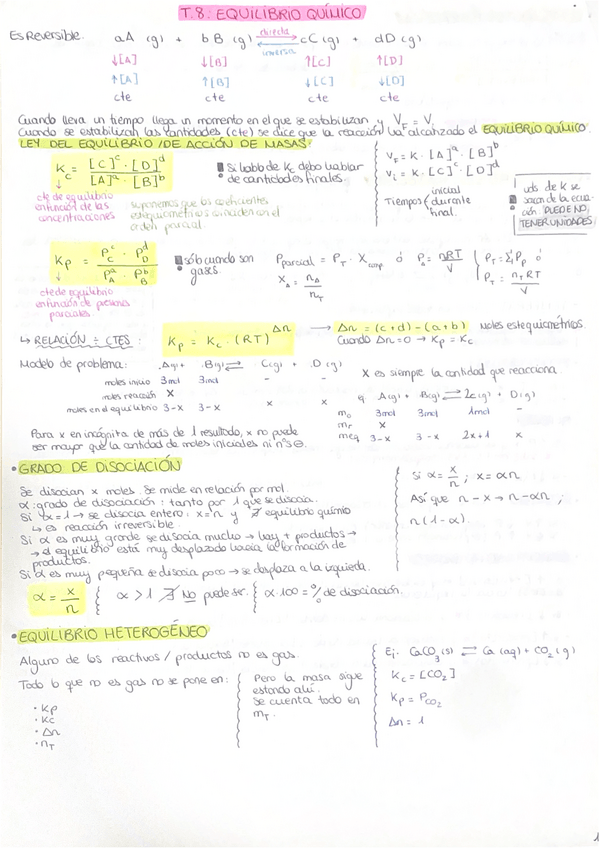 T.8: EQUILIBRIO QUÍMICO
Es Reversible. aA (g) + bB (g) ⇄ cC (g) + dD (g)
directa
inversa
↓[A] ↓[B] ↑[C] ↑[D]
↑[A] ↑[B] ↓[C] ↓[D]
cte cte cte cte
Cuando lleva un tiempo llega un momento en el que se estabilizan y V_F = V_i
Cuando se estabilizan las cantidades (cte) se dice que la reacción ha alcanzado el EQUILIBRIO QUÍMICO.
LEY DEL EQUILIBRIO / DE ACCIÓN DE MASAS:
K_C = [C]^c · [D]^d / [A]^a · [B]^b
Si hablo de Kc debo hablar
de cantidades finales.
cte de equilibrio
en función de las
concentraciones
suponemos que los coeficientes
estequiométricos coinciden con el
orden parcial.
V_F = K · [A]^a · [B]^b
V_i = K · [C]^c · [D]^d
Tiempos { inicial
durante
final.
uds de K se
sacan de la ecua-
ción. PUEDE NO
TENER UNIDADES
K_P = P_C^c · P_D^d / P_A^a · P_B^b
sólo cuando son
gases.
cte de equilibrio
en función de presiones
parciales.
P_parcial = P_T · X_comp ó P_A = nRT / V
X_A = n_A / n_T
P_T = Σ P_P ó
P_T = n_T RT / V
↳ RELACIÓN ÷ CTES: K_P = K_C · (RT)^Δn → Δn = (c+d) - (a+b) Moles estequiométricos.
Cuando Δn = 0 → K_P = K_C
Modelo de problema: A(g) + B(g) ⇄ C(g) + D(g)
moles inicio 3mol 3mol - -
moles reacción X
moles en el equilibrio 3-x 3-x x x
X es siempre la cantidad que reacciona.
ej A(g) + B(g) ⇄ 2C(g) + D(g)
m_o 3mol 3mol 1mol -
m_r x
m_eq 3-x 3-x 2x+1 x
Para x en incógnita de más de 1 resultado, x no puede
ser mayor que la cantidad de moles iniciales ni nºs ⊖.
• GRADO DE DISOCIACIÓN
Se disocian x moles. Se mide en relación por mol.
α: grado de disociación: tanto por 1 que se disocia.
Si α = 1 → se disocia entero, x = n y ∄ equilibrio químico
↳ es reacción irreversible.
Si α es muy grande se disocia mucho → hay + productos →
→ el equilibrio está muy desplazado hacia la formación de
productos.
Si α es muy pequeña se disocia poco → se desplaza a la izquierda.
Si α = x/n ; x = αn
Así que n - x → n - αn ,
n (1 - α)
α = x/n { α > 1 ∄ No puede ser. { α·100 = % de disociación.
• EQUILIBRIO HETEROGÉNEO
Alguno de los reactivos / productos no es gas.
Todo lo que no es gas no se pone en:
· Kp
· Kc
· Δn
· n_T
Pero la masa sigue
estando ahí.
Se cuenta todo en
m_T.
Ej. CaCO3 (s) ⇄ Ca (aq) + CO2 (g)
K_C = [CO2]
K_P = P_CO2
Δn = 1
1